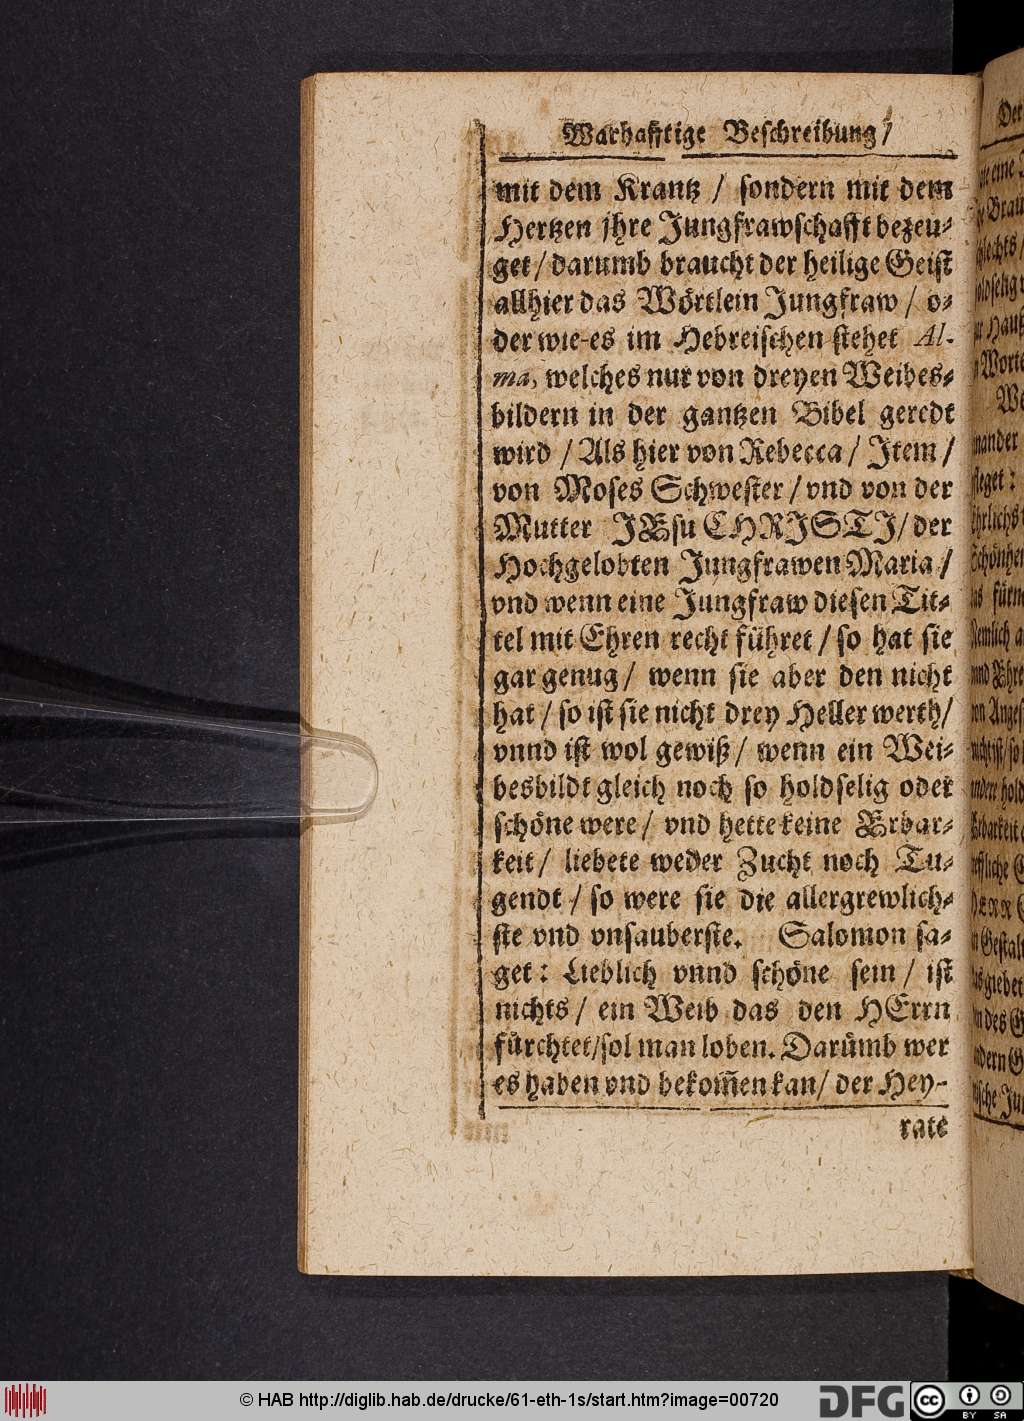 Warhafftige Beschreibung/
mit dem Krantz / sondern mit dem
Hertzen jhre Jungfrawschafft bezeu-
get / darumb braucht der heilige Geist
allhier das Wörtlein Jungfraw / o-
der wie-es im Hebreischen stehet Al-
ma, welches nur von dreyen Weibes-
bildern in der gantzen Bibel geredt
wird / Als hier von Rebecca / Item /
von Moses Schwester / vnd von der
Mutter JEsu CHRISTI / der
Hochgelobten Jungfrawen Maria /
vnd wenn eine Jungfraw diesen Tit-
tel mit Ehren recht führet / so hat sie
gar genug / wenn sie aber den nicht
hat / so ist sie nicht drey Heller werth /
vnnd ist wol gewiß / wenn ein Wei-
besbildt gleich noch so holdselig oder
schöne were / vnd hette keine Erbar-
keit / liebete weder Zucht noch Tu-
gendt / so were sie die allergrewlich-
ste vnd vnsauberste. Salomon sa-
get : Lieblich vnnd schöne sein / ist
nichts / ein Weib das den HErrn
fürchtet/sol man loben. Darümb wer
es haben vnd bekom̄en kan / der Hey-
rate
© HAB http://diglib.hab.de/drucke/61-eth-1s/start.htm?image=00720
DFG
cc
BY SA